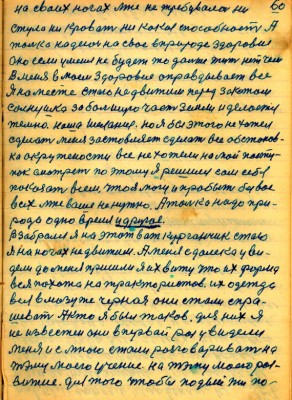 на своих ногах мне не требувался ни 60
стула ни кровати ни какая способность А
только надеюсь на свое в природе Здоровие
оно если у меня не будет то дальше жить нечем
В меня в моем Здоровие оправдывает все
Я на месте стою недвижим перед закатом
солнушка за большую часть Земли и делается
темно. наша но я бы этого не хотел
сделать меня заставляет сделать все обстанов-
ка окружности все не хотели на мой посту-
пок смотреть по этому я решился сам себе
показать всем что я могу и пробыть бы вое
всех мне ваше не нужно. А только надо при-
рода одно время и другое.
Взабрался я на этот ват курганчик стою
я на ногах недвижим. А меня с далека уви-
дели до меня пришли я их вижу что их форма
вся похожа на трактористов. их одежда
вся в мазуте черная они стали спра-
шевать А кто я был таков. для них я
не известен они в первай раз увидели
меня и с мною стали разговаривать на
тэму моего учение. на тэму моего раз-
витие. для того чтобы подый ти по-